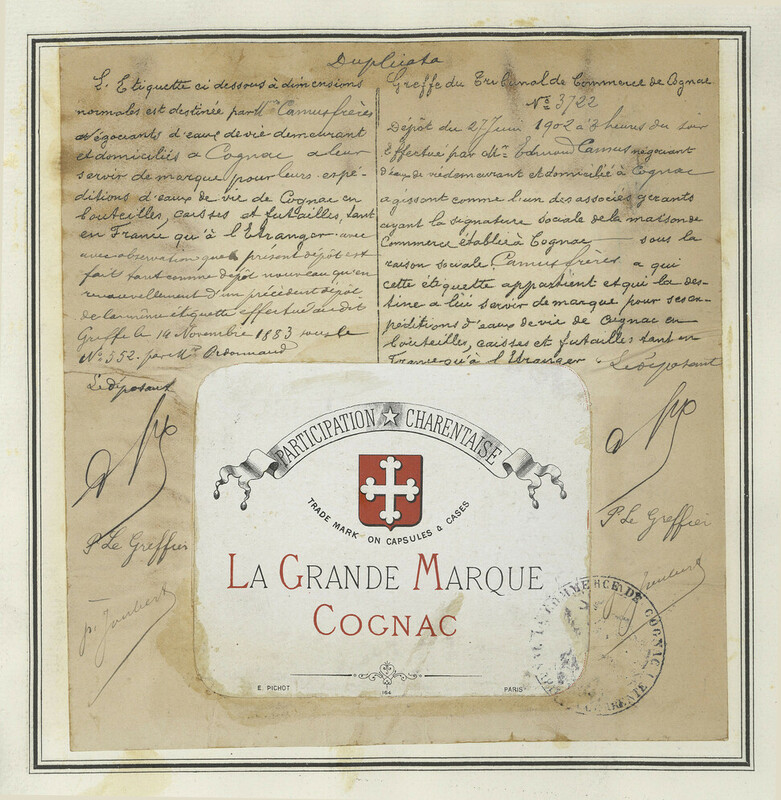 Duplicata
L'Etiquette ci dessous à dimensions
normales est destinée par Mrs Camus frères
négociants d'eaux de vie demeurant
et domiciliés à Cognac à leur
servir de marque pour leurs expé-
ditions d'eaux de vie de Cognac en
bouteilles, caisses et futailles, tant
en France qu'à l'Etranger avec
avec observation que le présent dépôt est
fait tant comme dépôt nouveau qu'en
renouvellement d'un précédent dépôt
de la même étiquette effectué au dit
Greffe le 14 Novembre 1883 sous le
No 552 par Mr
Le déposant
Greffe du Tribunal de Commerce de Cognac
No 3722
Dépôt du 27 Juin 1902 à 3 heures du soir
Effectué par Mr Edmond Camus négociant
d'eaux de vie demeurant et domicilié à Cognac
agissant comme l'un des associés gérants
ayant la signature sociale de la maison de
Commerce établie à Cognac sous la
raison sociale Camus frères à qui
cette étiquette appartient et qui la des-
tine à lui servir de marque pour ses ex-
péditions d'eaux de vie de Cognac en
bouteilles, caisses et futailles tant en
France qu'à l'Etranger Le déposant
PARTICIPATION CHARENTAISE
TRADE MARK ON CAPSULES & CASES
LA GRANDE MARQUE
COGNAC
E. PICHOT
164
PARIS
P. Le Greffier
p. Joubert
P. Le Greffier
Joubert
COMMERCE DE COGNAC